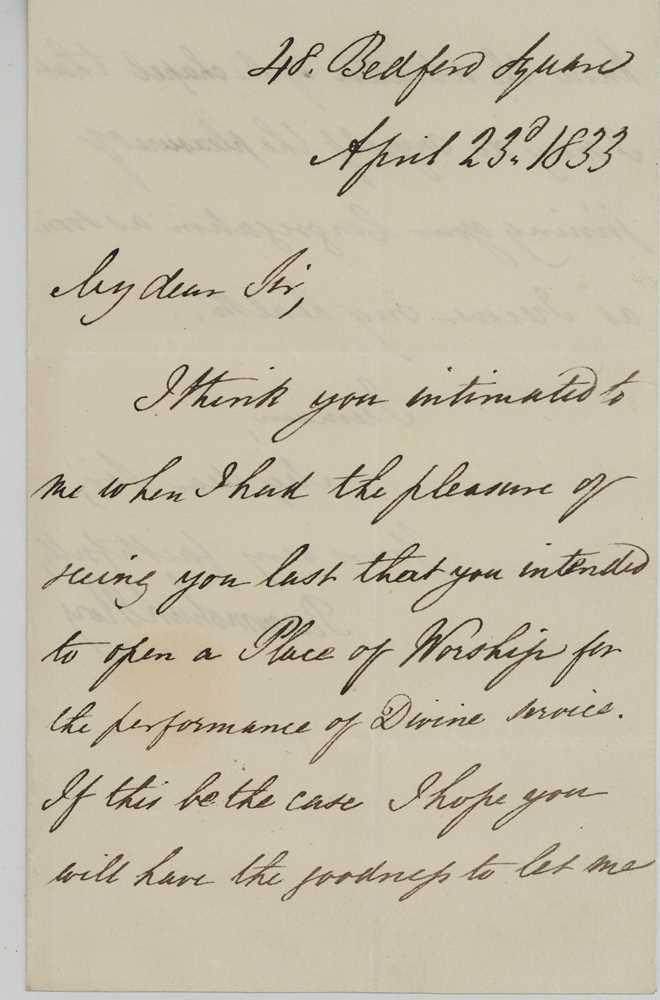 48. Bedford Square
April 23d. 1833
My dear Sir,
I think you intimated to
me when I had the pleasure of
seeing you last that you intended
to open a Place of Worship for
the performance of Divine service.
If this be the case I hope you
will have the goodness to let me